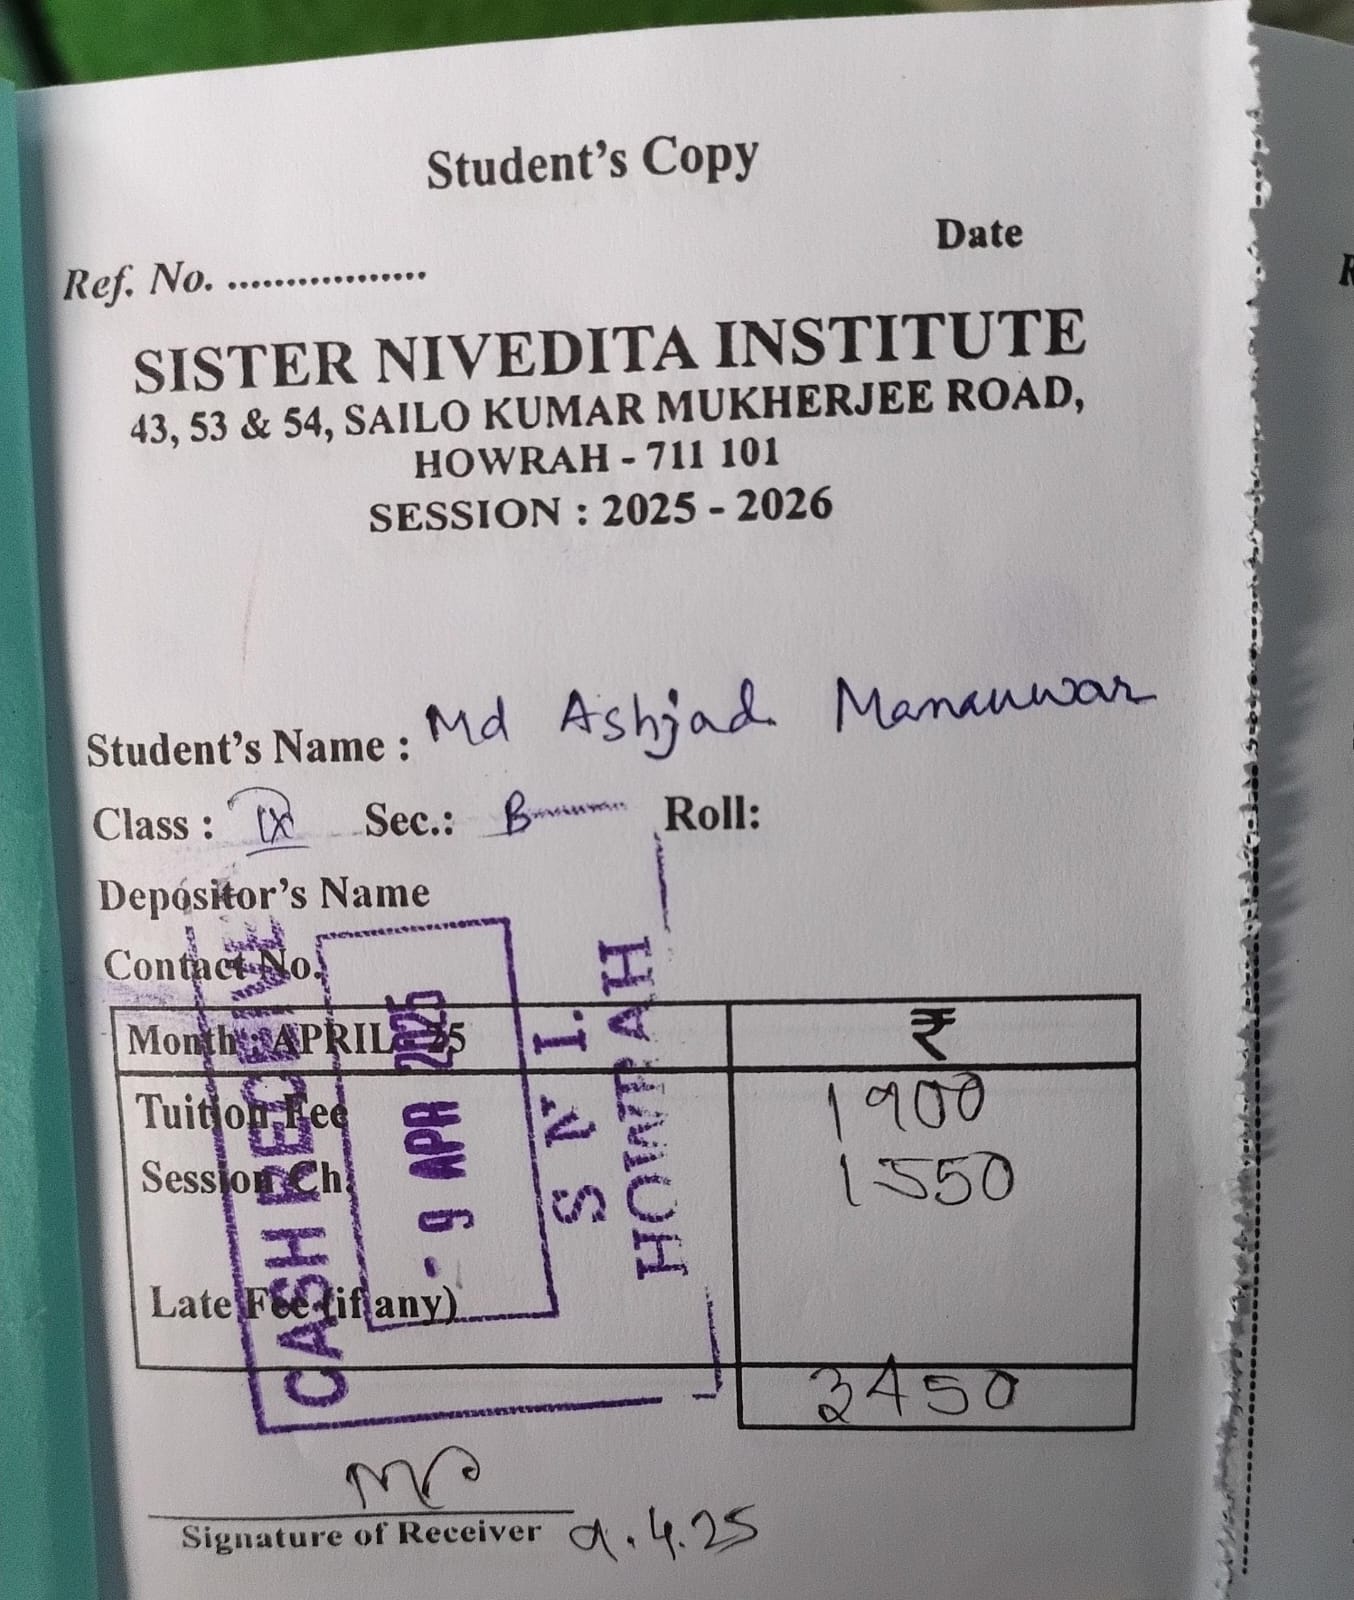 Student's Copy
Date
Ref. No. ..................
SISTER NIVEDITA INSTITUTE
43, 53 & 54, SAILO KUMAR MUKHERJEE ROAD,
HOWRAH - 711 101
SESSION : 2025 - 2026
Student's Name : Md Ashjad Manauwar
Class : IX Sec.: B Roll:
Depositor's Name
Contact No.
Month : APRIL 25 ₹
Tuition Fee 1900
Session Ch. 1550
Late Fee (if any)
3450
CASH RECEIVE
- 9 APR 2025
S N I.
HOWRAH
Signature of Receiver 9.4.25